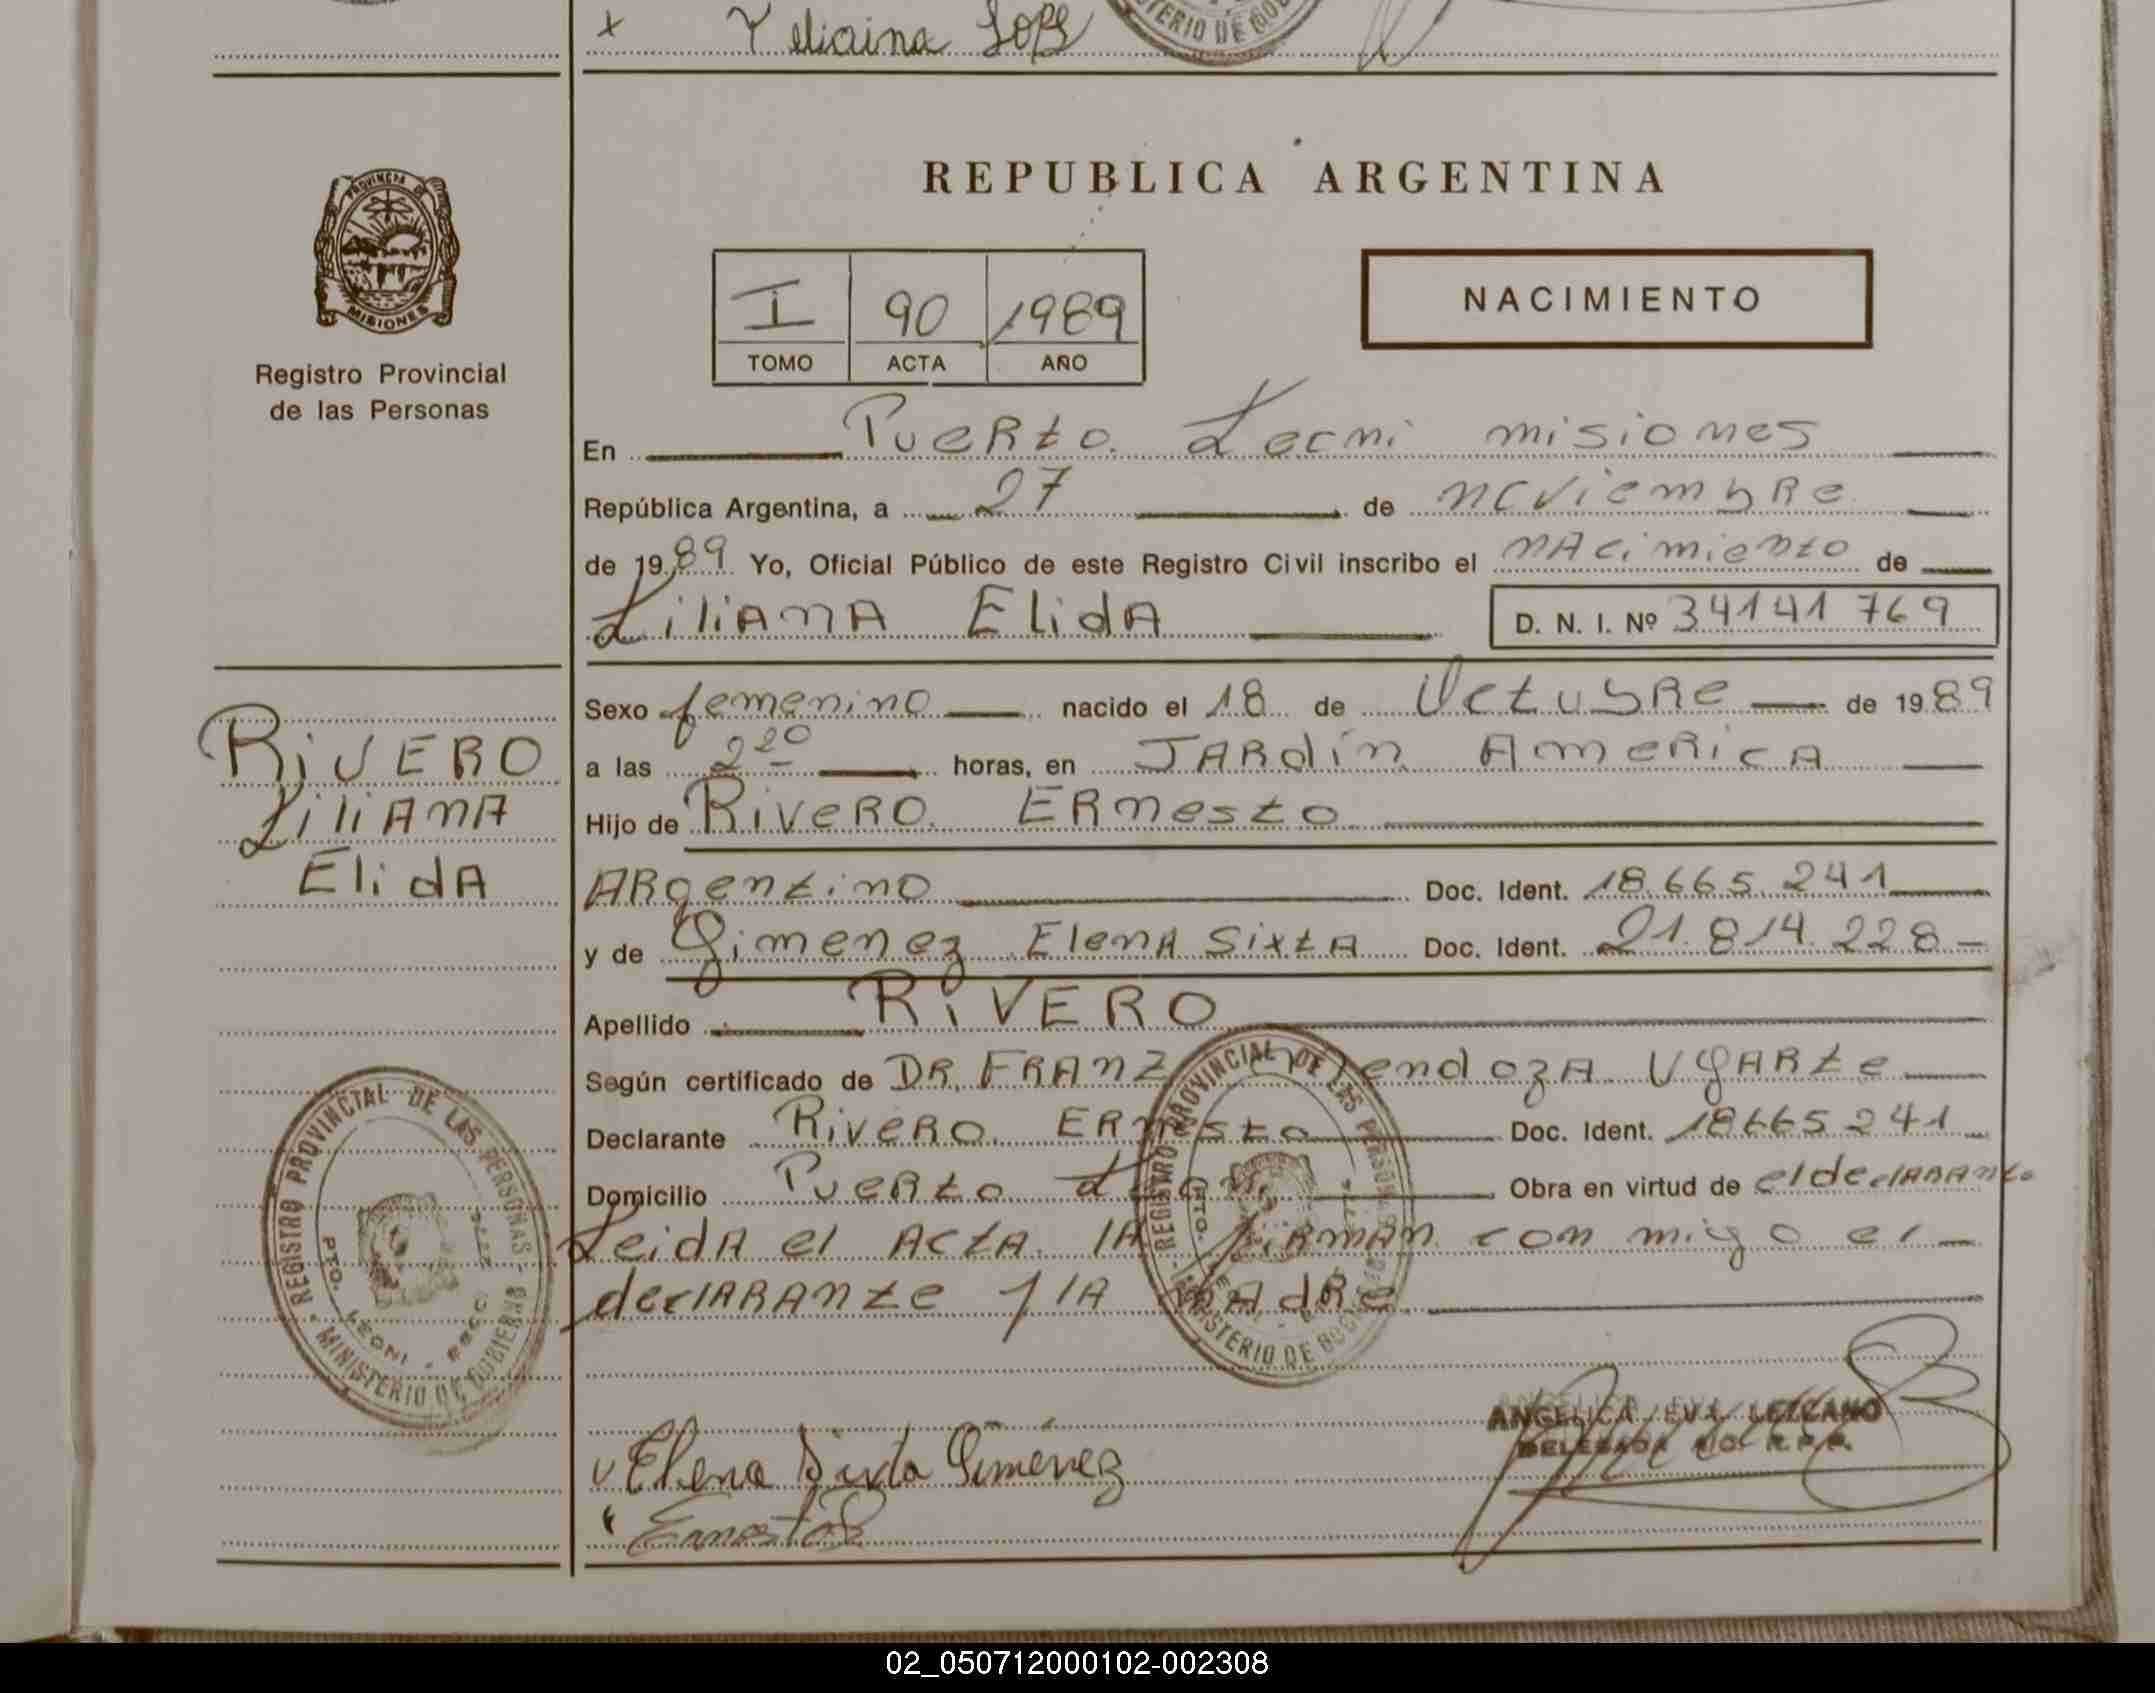 Feliciana Lopz
MINISTERIO DE GOB
PROVINCIA DE
MISIONES
Registro Provincial
de las Personas
REPUBLICA ARGENTINA
I 90 1989
TOMO ACTA AÑO
NACIMIENTO
En Puerto Leoni misiones
República Argentina, a 27 de noviembre
de 1989 Yo, Oficial Público de este Registro Civil inscribo el nacimiento de
Liliana Elida D. N. I. Nº 34141769
Sexo femenino nacido el 18 de Octubre de 1989
a las 2 20 horas, en Jardín America
Hijo de Rivero Ernesto
Argentino Doc. Ident. 18.665.241
y de Gimenez Elena Sixta Doc. Ident. 21.814.228
Apellido RIVERO
Según certificado de DR. FRANZ Mendoza Ugarte
Declarante Rivero Ernesto Doc. Ident. 18665241
Domicilio Puerto Leoni Obra en virtud de el declarante
Leida el Acta la firman con migo el
declarante y la madre
RIVERO
Liliana
Elida
REGISTRO PROVINCIAL DE LAS PERSONAS
MINISTERIO DE GOBIERNO
PTO. LEONI
REGISTRO PROVINCIAL DE LAS PERSONAS
MINISTERIO DE GOBIERNO
PTO.
ANGELICA EVA LEZCANO
DELEGADA R.P.P.
Elena Sixta Gimenez
Ernesto R
02_050712000102-002308